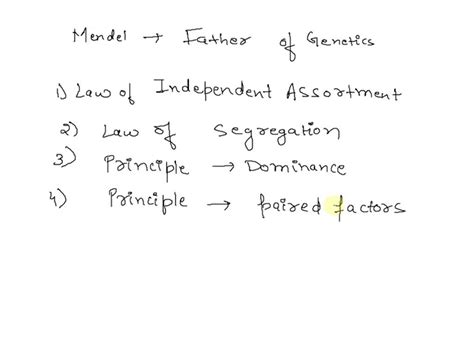 Mendel → Father of Genetics
1) Law of Independent Assortment
2) Law of Segregation
3) Principle → Dominance
4) Principle → paired factors